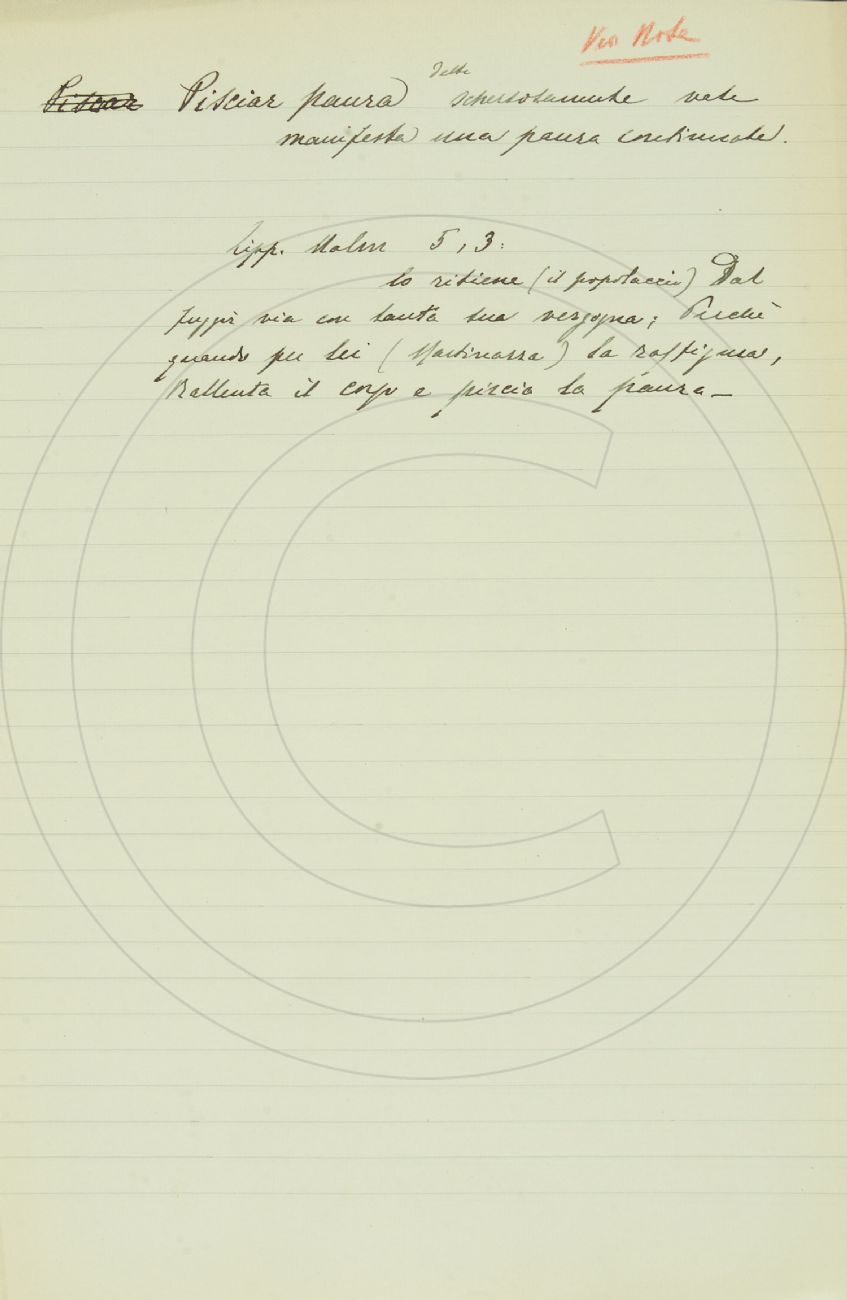 Via Nota
Pisciar Pisciar paura detto scherzosamente vale
manifesta una paura continuata.
Lipp. Malm 5, 3:
lo ritiene (il popolaccio) Dal
fuggir via con tanta sua vergogna; Perchè
quando per lei (Martinazza) la raffigura,
Rallenta il corpo e piscia la paura_